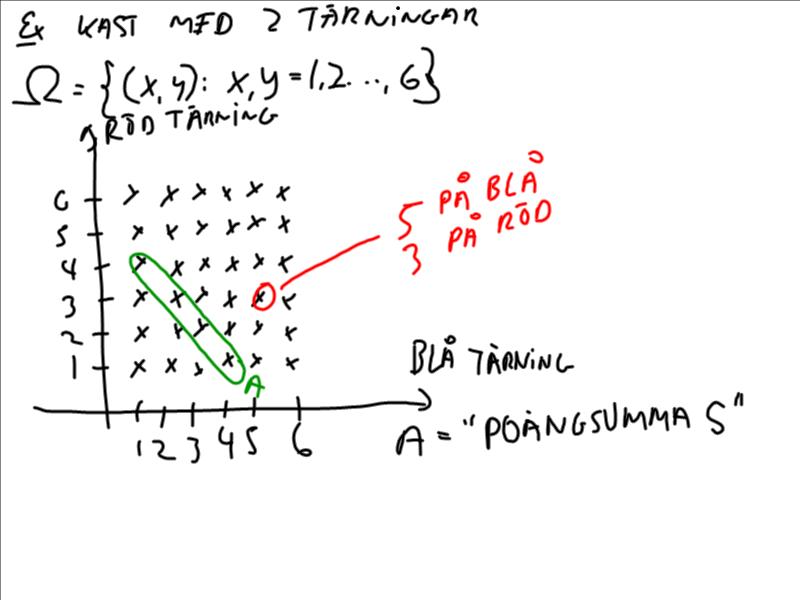 Ex KAST MED 2 TÄRNINGAR
Ω = {(x, y): x, y = 1, 2 ..., 6}
RÖD TÄRNING
6
5
4
3
2
1
5 PÅ BLÅ
3 PÅ RÖD
A
BLÅ TÄRNING
1 2 3 4 5 6
A = "POÄNGSUMMA 5"